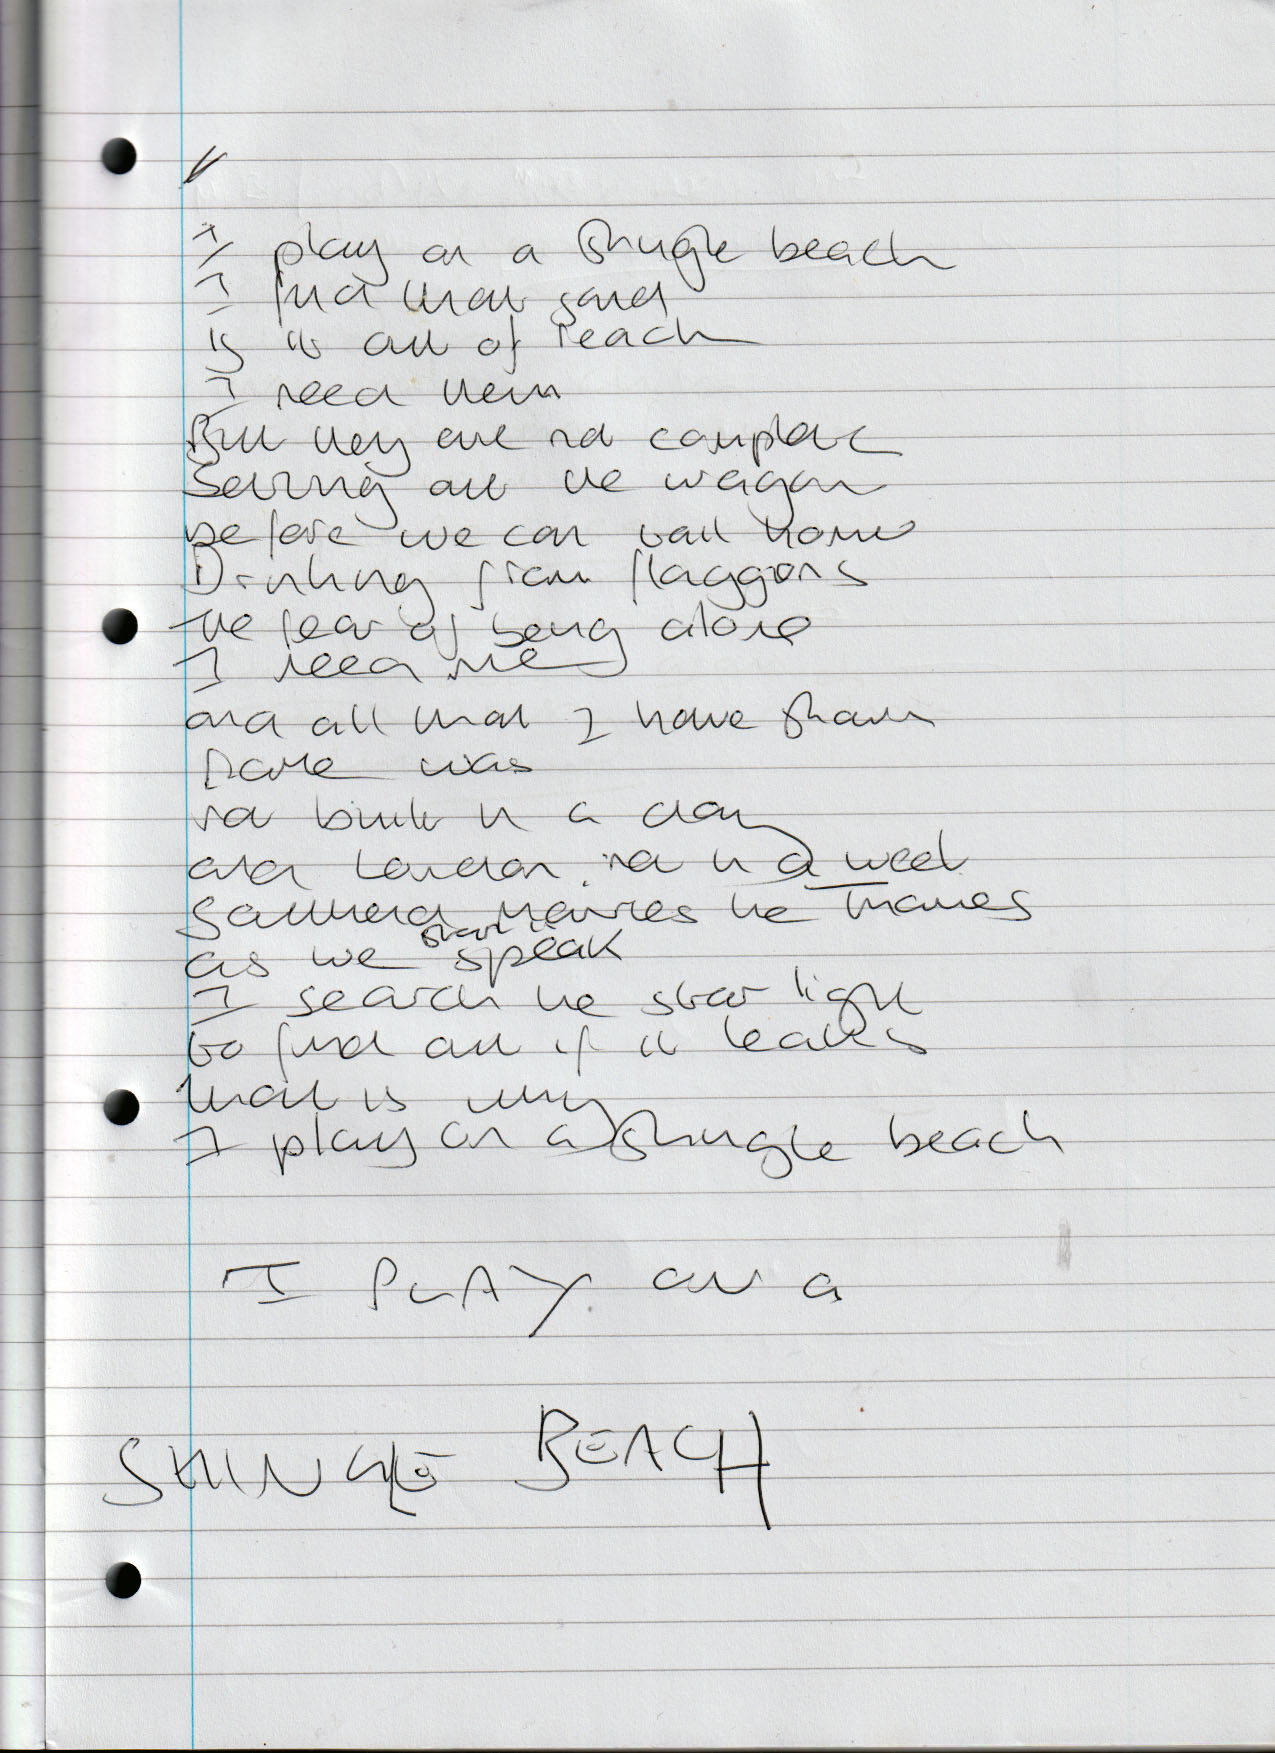 I play on a shingle beach
I find that sand
is it out of reach
I need them
But they are not complete
Setting out the wagon
before we can sail home
Drinking from flaggons
the fear of being alone
I need me
and all that I have shown
Rome was
not built in a day
and London not in a week
the Thames
as we speak
I search the star light
to find out if it leaks
that is why
I play on a shingle beach
I PLAY on a
SHINGLE BEACH